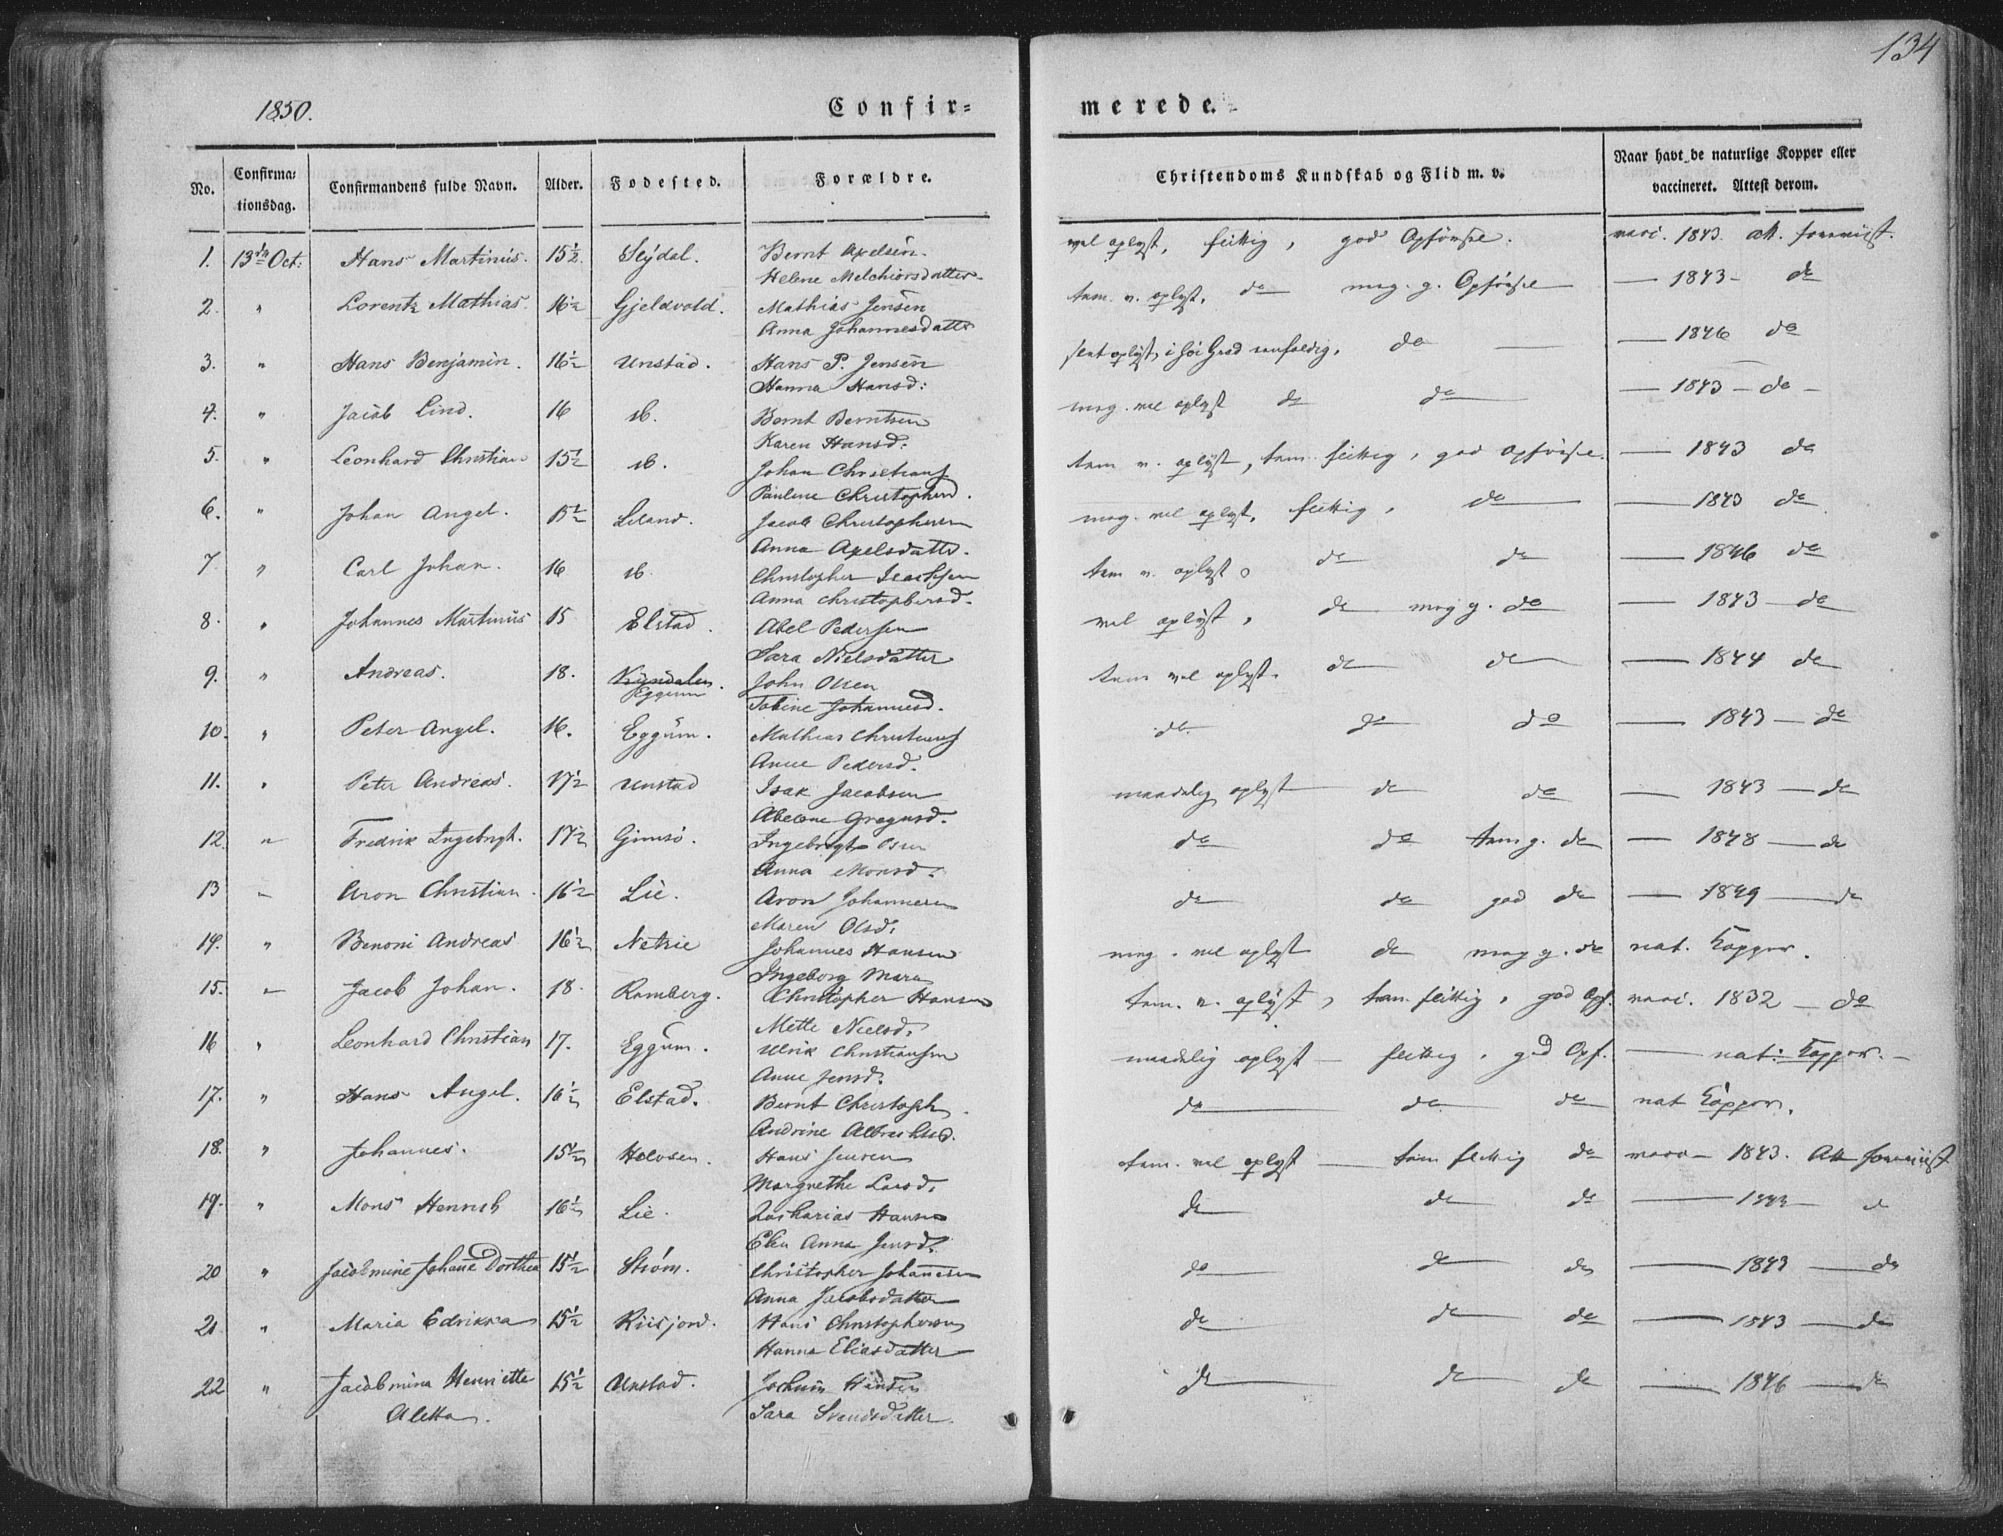 134
1850.
Confir= merede.
No. Confirma= tionsdag. Confirmandens fulde Navn. Alder. Fodested. Forældre. Christendoms Kundskab og Flid m. v. Naar havt de naturlige Kopper eller vaccineret. Attest derom.
1. 13de Oct: Hans Martinus. 15½ Bernt Axelsen. vel oplyst, flittig, god Opførsel. vacc. 1843. att. foreviist.
Helene Melchiorsdatter
2. " Lorentz Mathias. 16½ Gjeldvold. Mathias Jensen tem. v. oplyst, do meg. g. Opførsel — 1843 — do
Anna Johannesdatter
3. " Hans Benjamin. 16½ Unstad. Hans P. Jensen do — — 1846 do
Hanna Hansd:
4. " Jacob Lind. 16 ib. Bernt Berntsen meg. vel oplyst do do — 1843 — do —
Karen Hansd:
5. " Leonhard Christian 15½ ib. Johan Christians tem v. oplyst, tem. flittig, god Opførsel. — 1843 do
Pauline Christophersd.
6. " Johan Angel. 15½ Leland. Jacob Christophersen meg. vel oplyst, flittig, do — 1843 do
Anna Axelsdatter.
7. " Carl Johan. 16 ib. Christopher tem v. oplyst do do — 1846 do
Anna Christophersd.
8. " Johannes Martinus 15 Elstad. Abel Pedersen vel oplyst, do meg g. do — 1843 — do
Sara Nielsdatter
9. " Andreas. 18. Eggum John Olsen tem vel oplyst. do do — 1844 do
Tobine Johannesd.
10. " Peter Angel. 16. Eggum. Mathias Christians do do do — 1843 — do
Anne Pedersd.
11. " Peter Andreas. 17½ Unstad Isak Jacobsen maadelig oplyst do do — 1843 — do
Abelone Gregersd.
12. " Fredrik Ingebrigt. 17½ Gimsø. Ingebrigt Olsen do do tem g. do — 1848 — do
Anna Monsd.
13 " Aron Christian. 16½ Lie. Aron Johannesen do do god do — 1849 — do
Maren Olsd.
14. " Benoni Andreas 16½ Johannes Hansen meg. vel oplyst do meg g. do nat. Kopper.
Ingeborg Mara
15. " Jacob Johan. 18. Ramberg. Christopher Hansen tem. v. oplyst, tem flittig, god Opf. vacc. 1832 — do
Mette Nielsd.
16 " Leonhard Christian 17. Eggum. Ulrik Christiansen maadelig oplyst — flittig, god Opf. — nat: Kopper. —
Anne Jensd.
17. " Hans Angel. 16½ Elstad. Bernt Christoph. do do do nat Kopper.
Andrine Albrechtsd.
18. " Johannes. 15½ Hans Jensen tem. vel oplyst — tem flittig do vacc — 1843. Att foreviist
Margrethe Larsd.
19. " Mons Henrich 16½ Lie. Zacharias Hansen do do do — 1843 — d
Elen Anna Jensd.
20 " Jacobmine Johane Dorthea 15½ Strøm. Christopher Johannesen do do do — 1843 — do
Anna Jacobsdatter
21 " Maria Edrikka 15½ Riisjord. Hans Christophersen do do do — 1843 — do
Hanna Eliasdatter
22 " Jacobmina Henriette 15½ Unstad. Jochum Hansen do do do — 1846 — do
Aletta. Sara Svendsdatter.